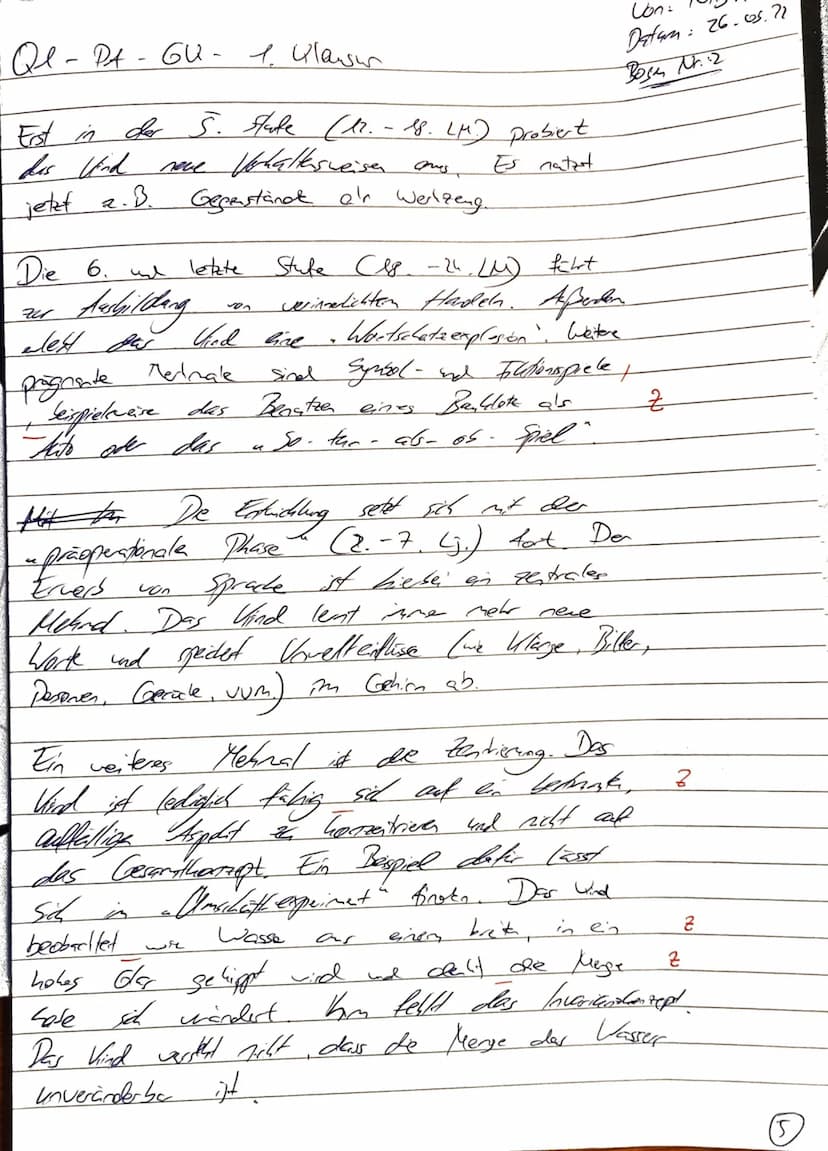 Von:
Datum: 26.05.22
Bogen Nr.: 2
Q1 - PA - GK - 1. Klausur
Erst in der 5. Stufe (12. - 18. LM.) probiert
das Kind neue Verhaltensweisen aus. Es nutzt
jetzt z.B. Gegenstände als Werkzeug.
Die 6. und letzte Stufe (18. - 24. LM) führt
zur Ausbildung von verinnerlichten Handeln. Außerdem
erlebt das Kind eine „Wortschatzexplosion“. Weitere
prägnante Merkmale sind Symbol- und Fiktionsspiele,
, beispielsweise das Benutzen eines Bauklotz als
Z
Auto oder das „So-tun-als-ob-Spiel“.
Die Entwicklung setzt sich mit der
„präoperationale Phase“ (2. - 7. Lj.) fort. Der
Erwerb von Sprache ist hierbei ein zentrales
Merkmal. Das Kind lernt immer mehr neue
Worte und speichert Umwelteinflüsse (wie Klänge, Bilder,
Personen, Gerüche, uvm.) im Gehirn ab.
Ein weiteres Merkmal ist die Zentrierung. Das
Kind ist lediglich fähig sich auf ein bestimmten,
Z
auffälligen Aspekt zu konzentrieren und nicht auf
das Gesamtkonzept. Ein Beispiel dafür lässt
sich im „Umschüttexperiment“ finden. Das Kind
beobachtet wie Wasser aus einem breiten, in ein
Z
hohes Glas gekippt wird und denkt die Menge
Z
habe sich verändert. Ihm fehlt das Invarianzkonzept.
Das Kind versteht nicht, dass die Menge des Wassers
unveränderbar ist.
5